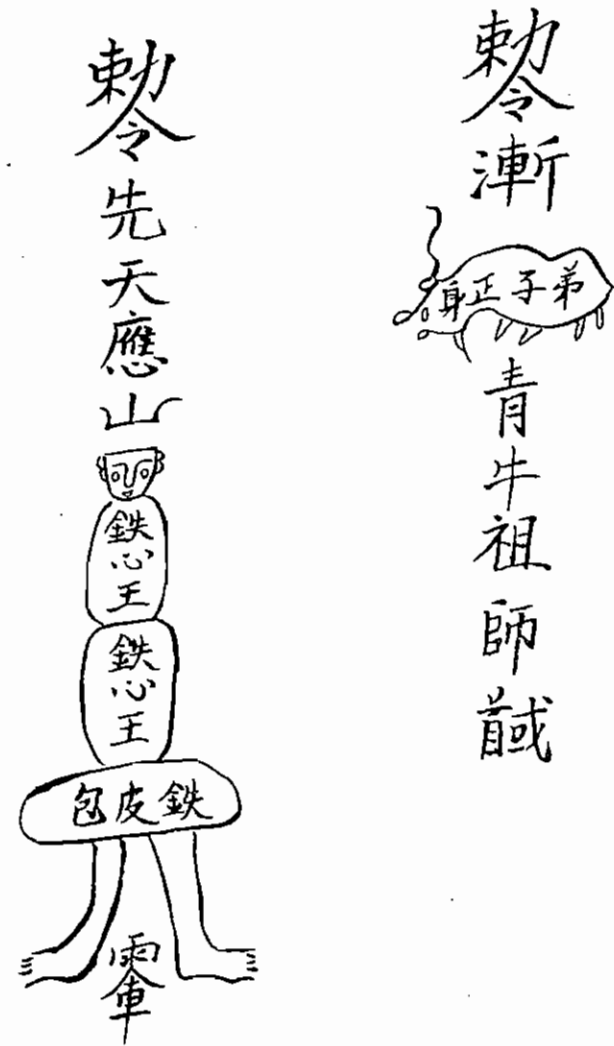 勅令漸
弟子正身
青牛祖師
勅令先天應山
鉄心王
鉄心王
鉄皮包